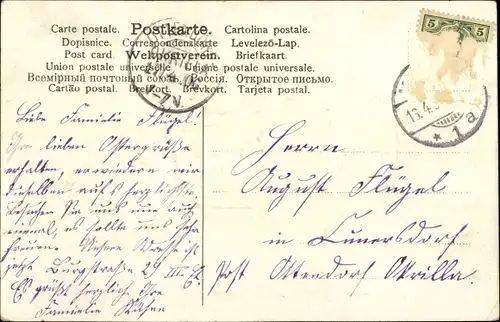 Carte postale. Postkarte. Cartolina postale.
Dopisnice. Correspondenzkarte Levelező-Lap.
Post card. Weltpostverein. Briefkaart.
Union postale universelle Unione postale universale.
Всемірный почтовый союзъ. Россія. Открытое письмо.
Cartão postal. Brefkort. Brevkort. Tarjeta postal.
5 5
Liebe Familie Flügel!
Ihre lieben Ostergrüße
erhalten, erwiedern wir
dieselben aufs herzlichste
Besuchen Sie uns nun auch
einmal, es sollte uns sehr
freuen. Unsere Adresse ist
jetzt Burgstraße 29 III
Es grüßt herzlich Ihre
Familie
Herrn
August Flügel
in Cunersdorf
Post Ottendorf Okrilla.
1 a